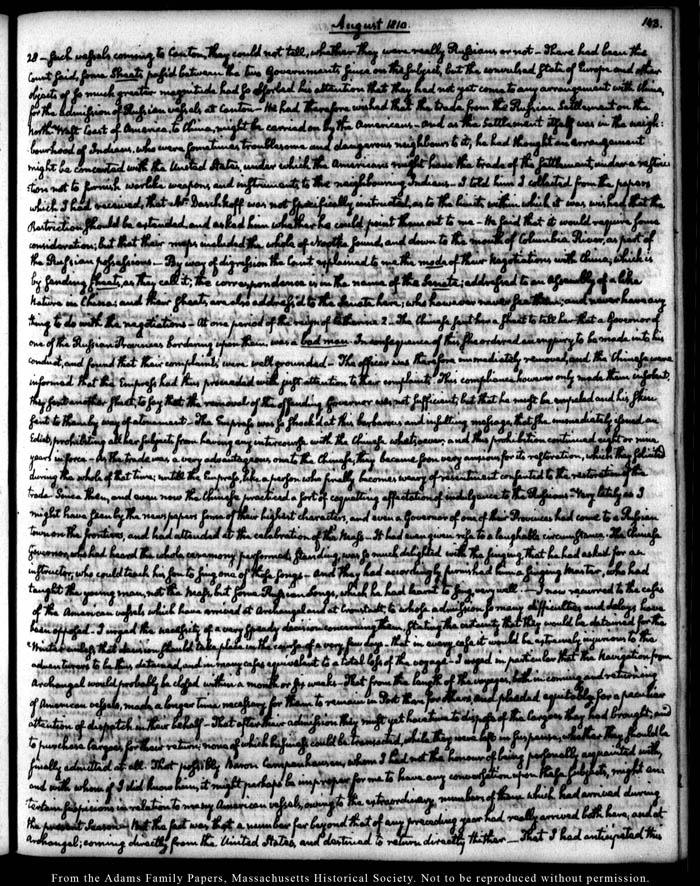 August 1810.
143.
28 - Such vessels coming to Canton, they could not tell, whether they were really Russians or not - There had been the
Count said, some Sheets pass'd between the two Governments since on this subject, but the convulsed state of Europe and other
objects of so much greater magnitude had so absorbed his attention that they had not yet come to any arrangement with China,
for the admission of Russian vessels at Canton - He had therefore wished that the trade from the Russian Settlement on the
North-West Coast of America, to China, might be carried on by the Americans - And as this Settlement itself was in the neigh:
bourhood of Indians, who were sometimes troublesome and dangerous neighbours to it, he had thought an arrangement
might be concerted with the United States, under which the Americans might have the trade of the Settlement, under a restric
tion not to furnish warlike weapons and instruments, to the neighbouring Indians - I told him I collected from the papers
which I had received, that Mr. Daschkoff was not specifically instructed, as to the limits within which it was wished that the
Restriction should be extended, and asked him whether he could point them out to me - He said that it would require some
consideration; but that their maps included the whole of Nootka Sound, and down to the mouth of Columbia River, as part of
the Russian possessions - By way of digression the Count explained to me the mode of their Negotiations with China, which is
by sending Sheets, as they call it; the correspondence is in the name of the Senate; addressed to an Assembly of a like
nature in China; and their Sheets, are also address'd to the Senate here; who however never see them; and never have any
thing to do with the negotiations - At one period of the reign of Catherine 2. The Chinese sent her a Sheet to tell her that a Governor of
one of the Russian Provinces bordering upon them, was a bad man. In consequence of this she ordered an enquiry to be made into his
conduct, and found that their complaints were well grounded - The officer was therefore immediately removed, and the Chinese were
informed that the Empress had thus proceeded with just attention to their complaint. This compliance however only made them insolent.
They sent another Sheet, to say that the removal of the offending Governor was not sufficient; but that he must be impaled and his skin
sent to them by way of atonement - The Empress was so shock'd at this barbarous and insulting message, that she immediately issued an
Edict, prohibiting all her subjects from having any intercourse with the Chinese whatsoever; and this prohibition continued eight or nine
years in force - As the trade was a very advantageous one to the Chinese, they became soon very anxious for its restoration, which they solicited
during the whole of that time; until the Empress, like a person who finally becomes weary of resentment consented to the restoration of the
trade. Since then, and even now the Chinese practiced a sort of coquetting affectation of indulgence to the Russians - Very lately, as I
might have seen by the newspapers some of their highest characters, and even a Governor of one of their Provinces had come to a Russian
town on the frontiers, and had attended at the celebration of the Mass - It had even given rise to a laughable circumstance. The Chinese
Governor, who had heard the whole ceremony performed, standing, was so much delighted with the singing, that he had asked for an
instructor, who could teach his Son to sing one of those Songs - And they had accordingly furnished him a singing Master, who had
taught the young man, not the Mass, but some Russian Songs, which he had learnt to sing very well. - I now recurred to the cases
of the American vessels which have arrived at Archangel and at Cronstadt, to whose admission so many difficulties and delays have
been opposed - I urged the necessity of a very speedy decision concerning them, stating the certainty that they would be detained for the
Winter unless that decision should take place in the course of a very few days - that in every case it would be extremely injurious to the
adventurers to be thus detained, and in many cases equivalent to a total loss of the voyage - I urged in particular that the Navigation from
Archangel would probably be closed within a month or six weeks - That from the length of the voyages, both in coming and returning
of American vessels, made a longer time necessary for them to remain in Port than for others, and pleaded equitably for a peculiar
attention of dispatch in their behalf - That after their admission they must yet have time to dispose of the cargoes they had brought; and
to purchase cargoes for their return; none of which business could be transacted, while they were left in suspense, whether they should be
finally admitted at all - That possibly Baron Campenhausen, whom I had not the honour of being personally acquainted with,
and with whom if I did know him, it might perhaps be improper for me to have any conversation upon these subjects, might en:
tertain suspicions in relation to many American vessels, owing to the extraordinary numbers of them which had arrived during
the present Season - But the fact was that a number far beyond that of any preceding year had really arrived both here, and at
Archangel; coming directly from the United States, and destined to return directly thither - That I had anticipated this
From the Adams Family Papers, Massachusetts Historical Society. Not to be reproduced without permission.